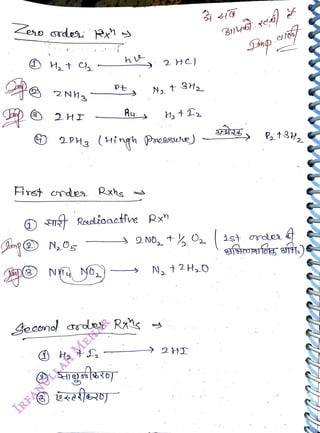 ये सब
आपको रटनी है
Imp वाली
Zero order Rxⁿ →
① H₂ + Cl₂ —hν→ 2HCl
Imp ② 2NH₃ —Pt→ N₂ + 3H₂
Imp ③ 2HI —Au→ H₂ + I₂
④ 2PH₃ (Hingh Pressure) —उत्प्रेरक→ P₂ + 3H₂
First order Rxns →
① सारी Radioactive Rxⁿ
Imp ② N₂O₅ → 2NO₂ + 1/2 O₂ (1st order की
Imp ③ NH₄ NO₂ → N₂ + 2H₂O
Second order Rxⁿs →
① H₂ + I₂ → 2HI
② साबुनीकरण
③ एस्टरीकरण
IRFANULLAH MEHAR